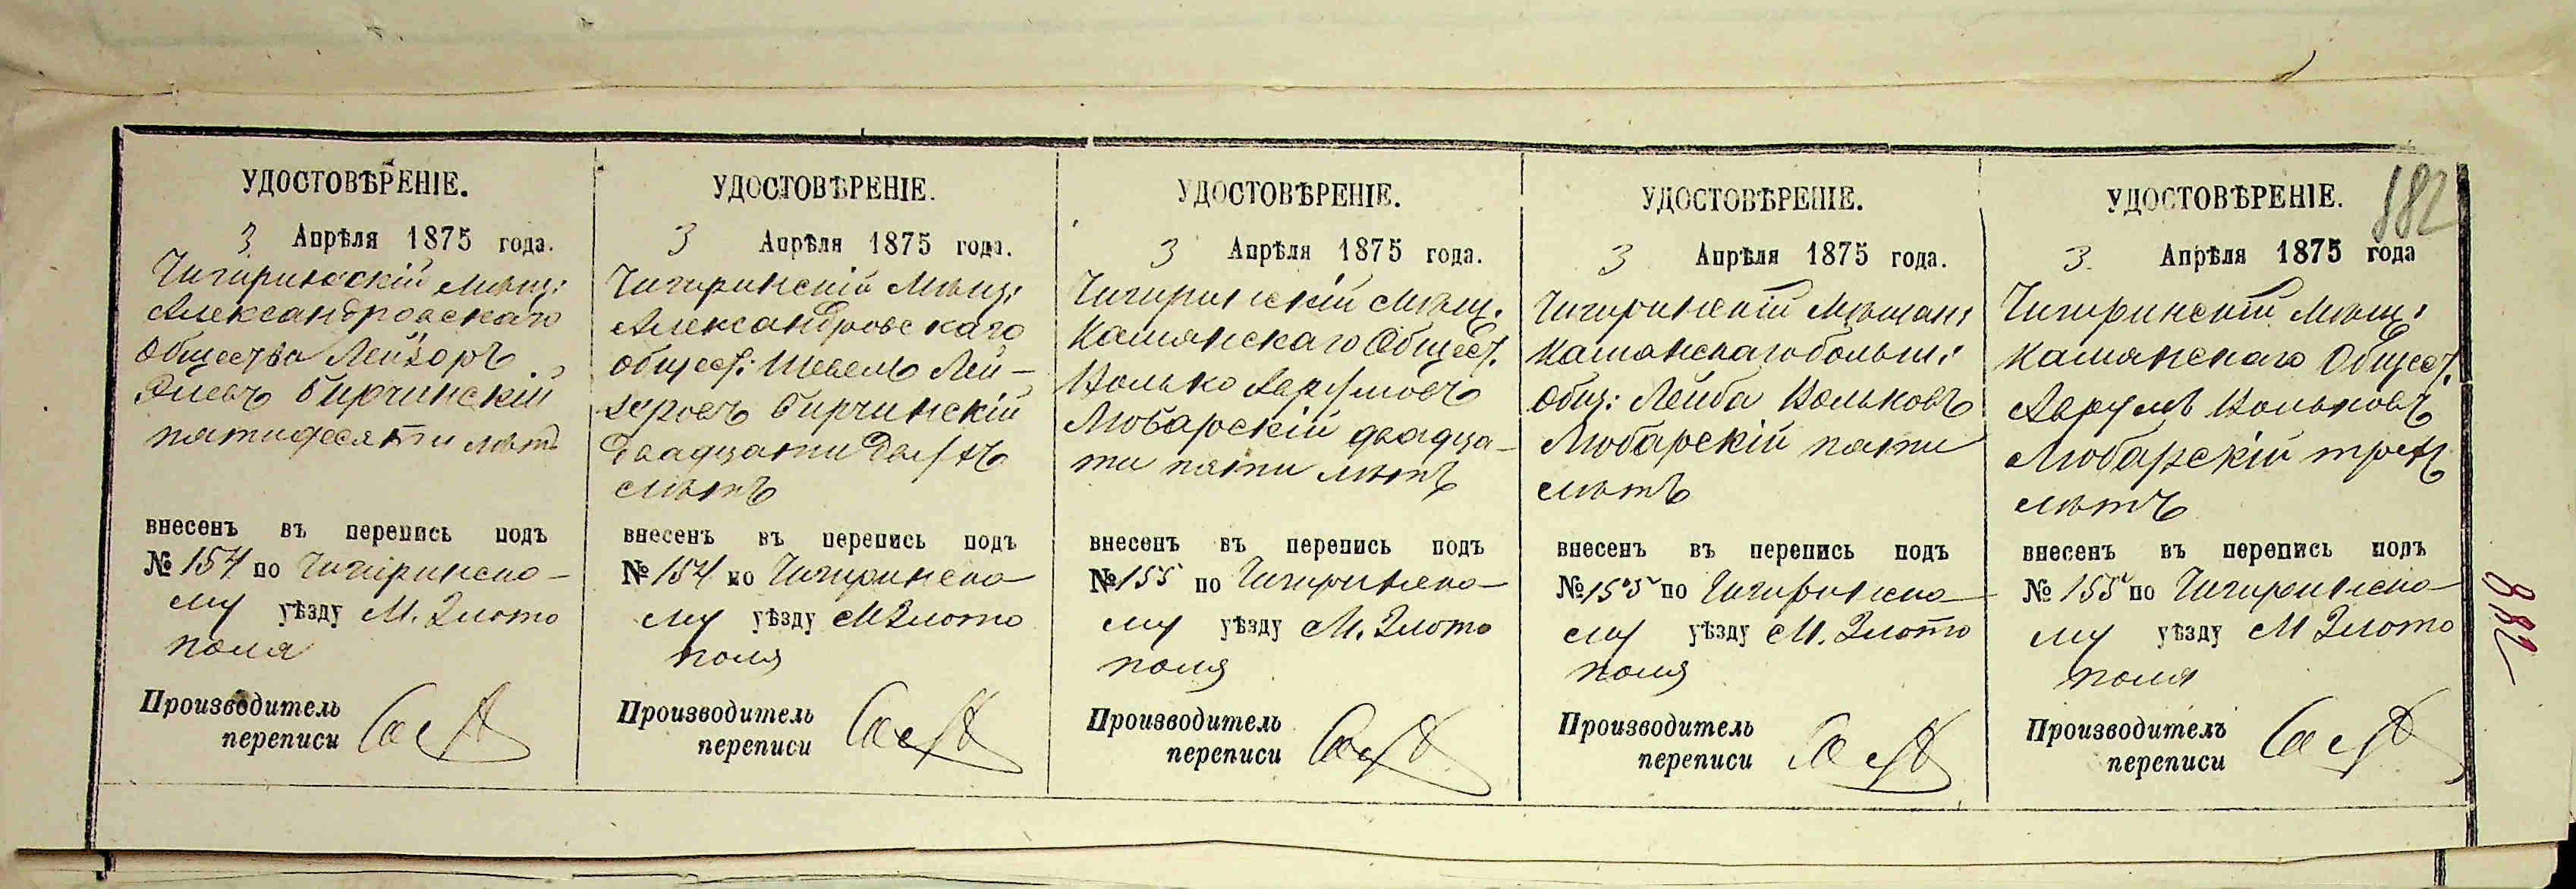 882
УДОСТОВѢРЕНІЕ.
3 Апрѣля 1875 года.
Чигиринскій мѣщ:
Александровскаго
Общества Лейзоръ
Бирчинскій
пятидесяти лѣтъ
внесенъ въ перепись подъ
№ 154 по Чигиринско-
му уѣзду М. Злото
поля
Производитель
переписи
УДОСТОВѢРЕНІЕ.
3 Апрѣля 1875 года.
Чигиринскій Мѣщ:
Александровскаго
общест: Шевель Лей-
зеровъ Бирчинскій
Двадцати двухъ
лѣтъ
внесенъ въ перепись подъ
№ 154 по Чигиринско
му уѣзду М Злото
поля
Производитель
переписи
УДОСТОВѢРЕНІЕ.
3 Апрѣля 1875 года.
Чигиринскій мѣщ.
Камянскаго Общест.
Волько Аврумовъ
Любарскій двадца-
ти пяти лѣтъ
внесенъ въ перепись подъ
№ 155 по Чигиринско-
му уѣзду М. Злото
поля
Производитель
переписи
УДОСТОВѢРЕНІЕ.
3 Апрѣля 1875 года.
Чигиринскій Мѣщан:
Камянскаго больш:
общ: Лейба Вольковъ
Любарскій пяти
лѣтъ
внесенъ въ перепись подъ
№ 155 по Чигиринско
му уѣзду М. Злото
поля
Производитель
переписи
УДОСТОВѢРЕНІЕ.
3 Апрѣля 1875 года
Чигиринскій Мѣщ:
Камянскаго Общест.
Аврумъ Вольковъ
Любарскій трехъ
лѣтъ
внесенъ въ перепись подъ
№ 155 по Чигиринско
му уѣзду М Злото
поля
Производитель
переписи
882